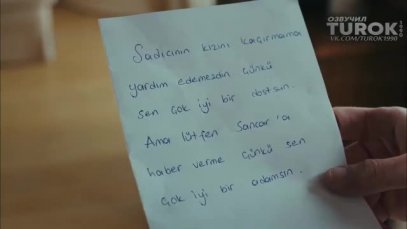 ОЗВУЧИЛ
TUROK 1990
VK.COM/TUROK1990
Sadıcının kızını kaçırmama
yardım edemezdin çünkü
sen çok iyi bir dostsun.
Ama lütfen Sancar'a
haber verme çünkü sen
çok iyi bir adamsın.